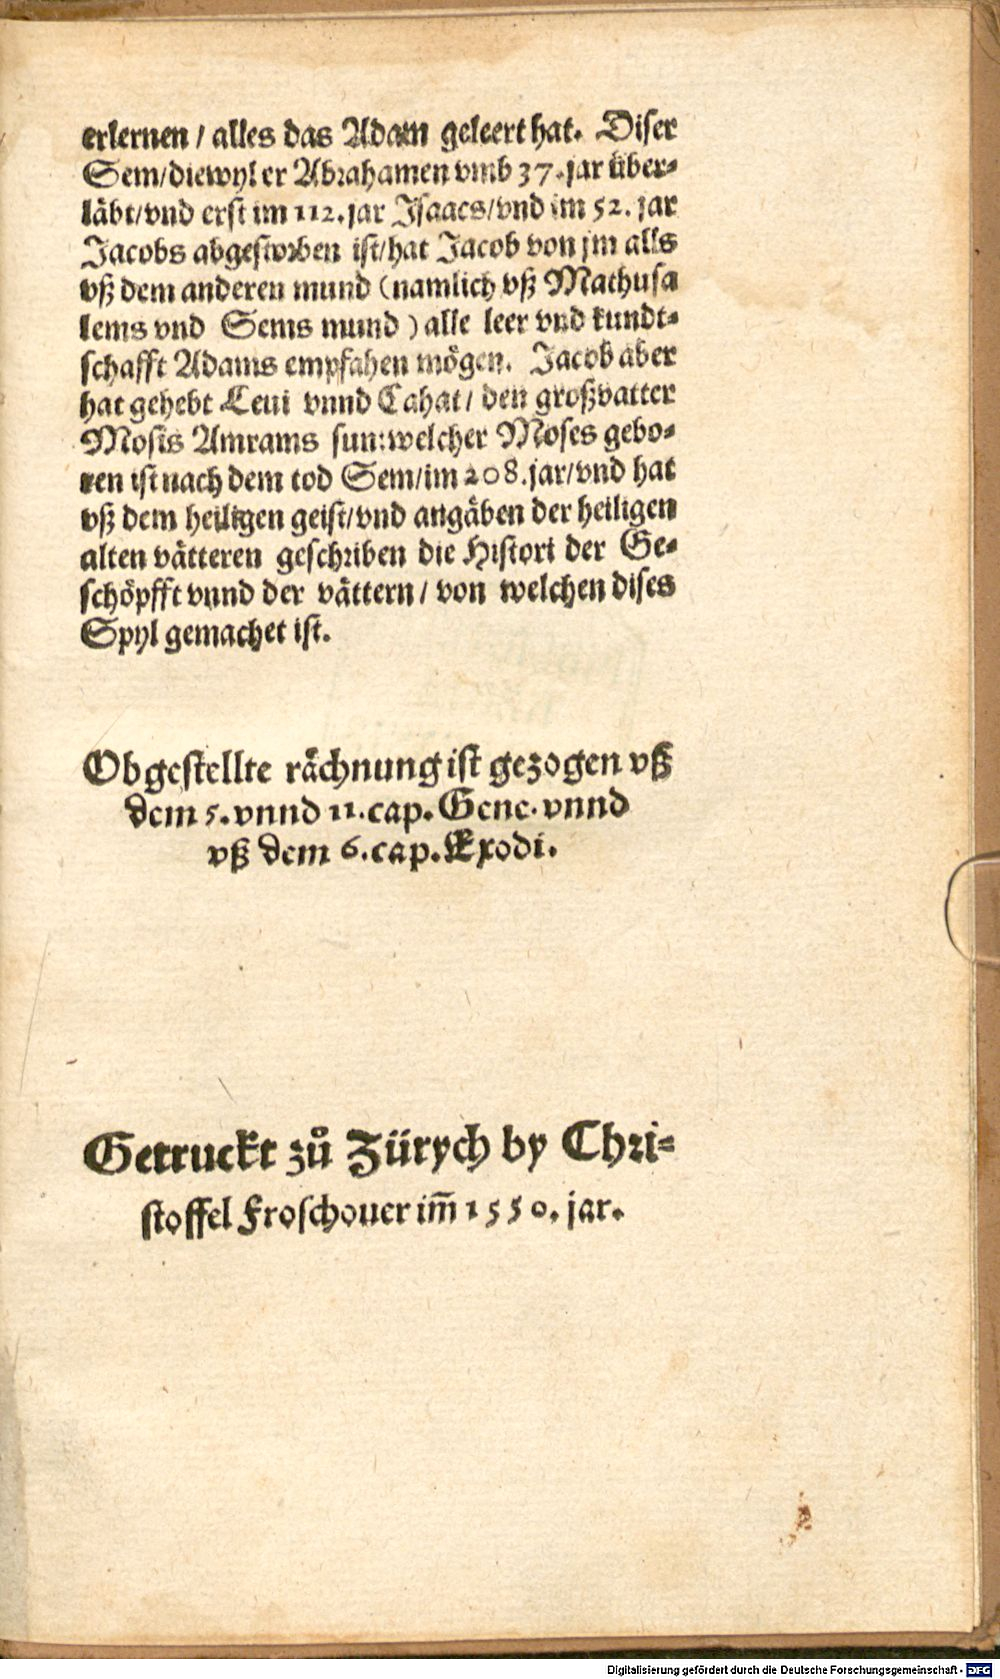 erlernen / alles das Adam geleert hat. Diser
Sem/diewyl er Abrahamen vmb 37. jar über-
läbt/vnd erst im 112. jar Isaacs/vnd im 52. jar
Jacobs abgestorben ist/hat Jacob von jm alls
vß dem anderen mund (namlich vß Mathusa
lems vnd Sems mund ) alle leer vnd kundt-
schafft Adams empfahen mögen. Jacob aber
hat gehebt Leui vnnd Cahat/ den großvatter
Mosis Amrams sun: welcher Moses gebo-
ren ist nach dem tod Sem/im 208. jar/vnd hat
vß dem heiligen geist/vnd angäben der heiligen
alten vätteren geschriben die Histori der Ge-
schöpfft vnnd der vättern / von welchen dises
Spyl gemachet ist.
Obgestellte rächnung ist gezogen vß
dem 5. vnnd 11. cap. Gene. vnnd
vß dem 6. cap. Exodi.
Getruckt zů Zürych by Chri-
stoffel Froschouer im̃ 1550. jar.
Digitalisierung gefördert durch die Deutsche Forschungsgemeinschaft - DFG